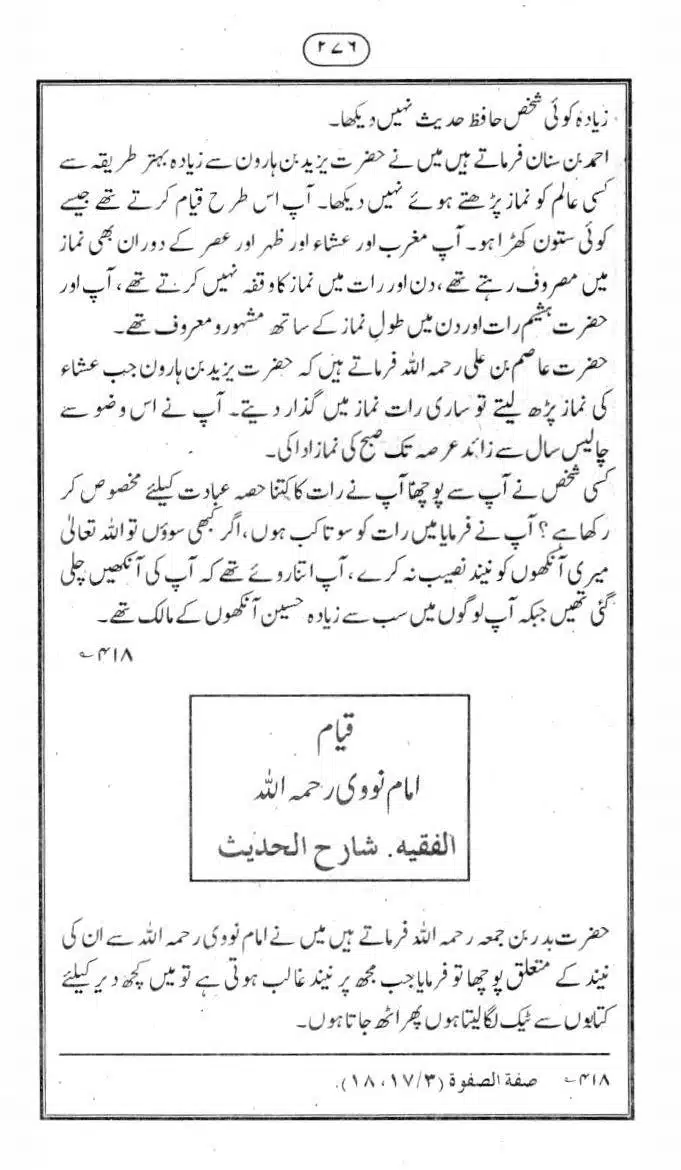 ۲۷۶
زیادہ کوئی شخص حافظ حدیث نہیں دیکھا۔
احمد بن سنان فرماتے ہیں میں نے حضرت یزید بن ہارون سے زیادہ بہتر طریقہ سے
کسی عالم کو نماز پڑھتے ہوئے نہیں دیکھا۔ آپ اس طرح قیام کرتے تھے جیسے
کوئی ستون کھڑا ہو۔ آپ مغرب اور عشاء اور ظہر اور عصر کے دوران بھی نماز
میں مصروف رہتے تھے، دن اور رات میں نماز کا وقفہ نہیں کرتے تھے، آپ اور
حضرت ہشیم رات اور دن میں طول نماز کے ساتھ مشہور و معروف تھے۔
حضرت عاصم بن علی رحمہ اللہ فرماتے ہیں کہ حضرت یزید بن ہارون جب عشاء
کی نماز پڑھ لیتے تو ساری رات نماز میں گذار دیتے۔ آپ نے اس وضو سے
چالیس سال سے زائد عرصہ تک صبح کی نماز ادا کی۔
کسی شخص نے آپ سے پوچھا آپ نے رات کا کتنا حصہ عبادت کیلئے مخصوص کر
رکھا ہے؟ آپ نے فرمایا میں رات کو سوتا کب ہوں، اگر کبھی سوؤں تو اللہ تعالیٰ
میری آنکھوں کو نیند نصیب نہ کرے، آپ اتنا روئے تھے کہ آپ کی آنکھیں چلی
گئی تھیں جبکہ آپ لوگوں میں سب سے زیادہ حسین آنکھوں کے مالک تھے۔
۴۱۸؎
قیام
امام نووی رحمہ اللہ
الفقیہ. شارح الحدیث
حضرت بدر بن جمعہ رحمہ اللہ فرماتے ہیں میں نے امام نووی رحمہ اللہ سے ان کی
نیند کے متعلق پوچھا تو فرمایا جب مجھ پر نیند غالب ہوتی ہے تو میں کچھ دیر کیلئے
کتابوں سے ٹیک لگا لیتا ہوں پھر اٹھ جاتا ہوں۔
۴۱۸؎ صفة الصفوة (۳/۱۷، ۱۸).